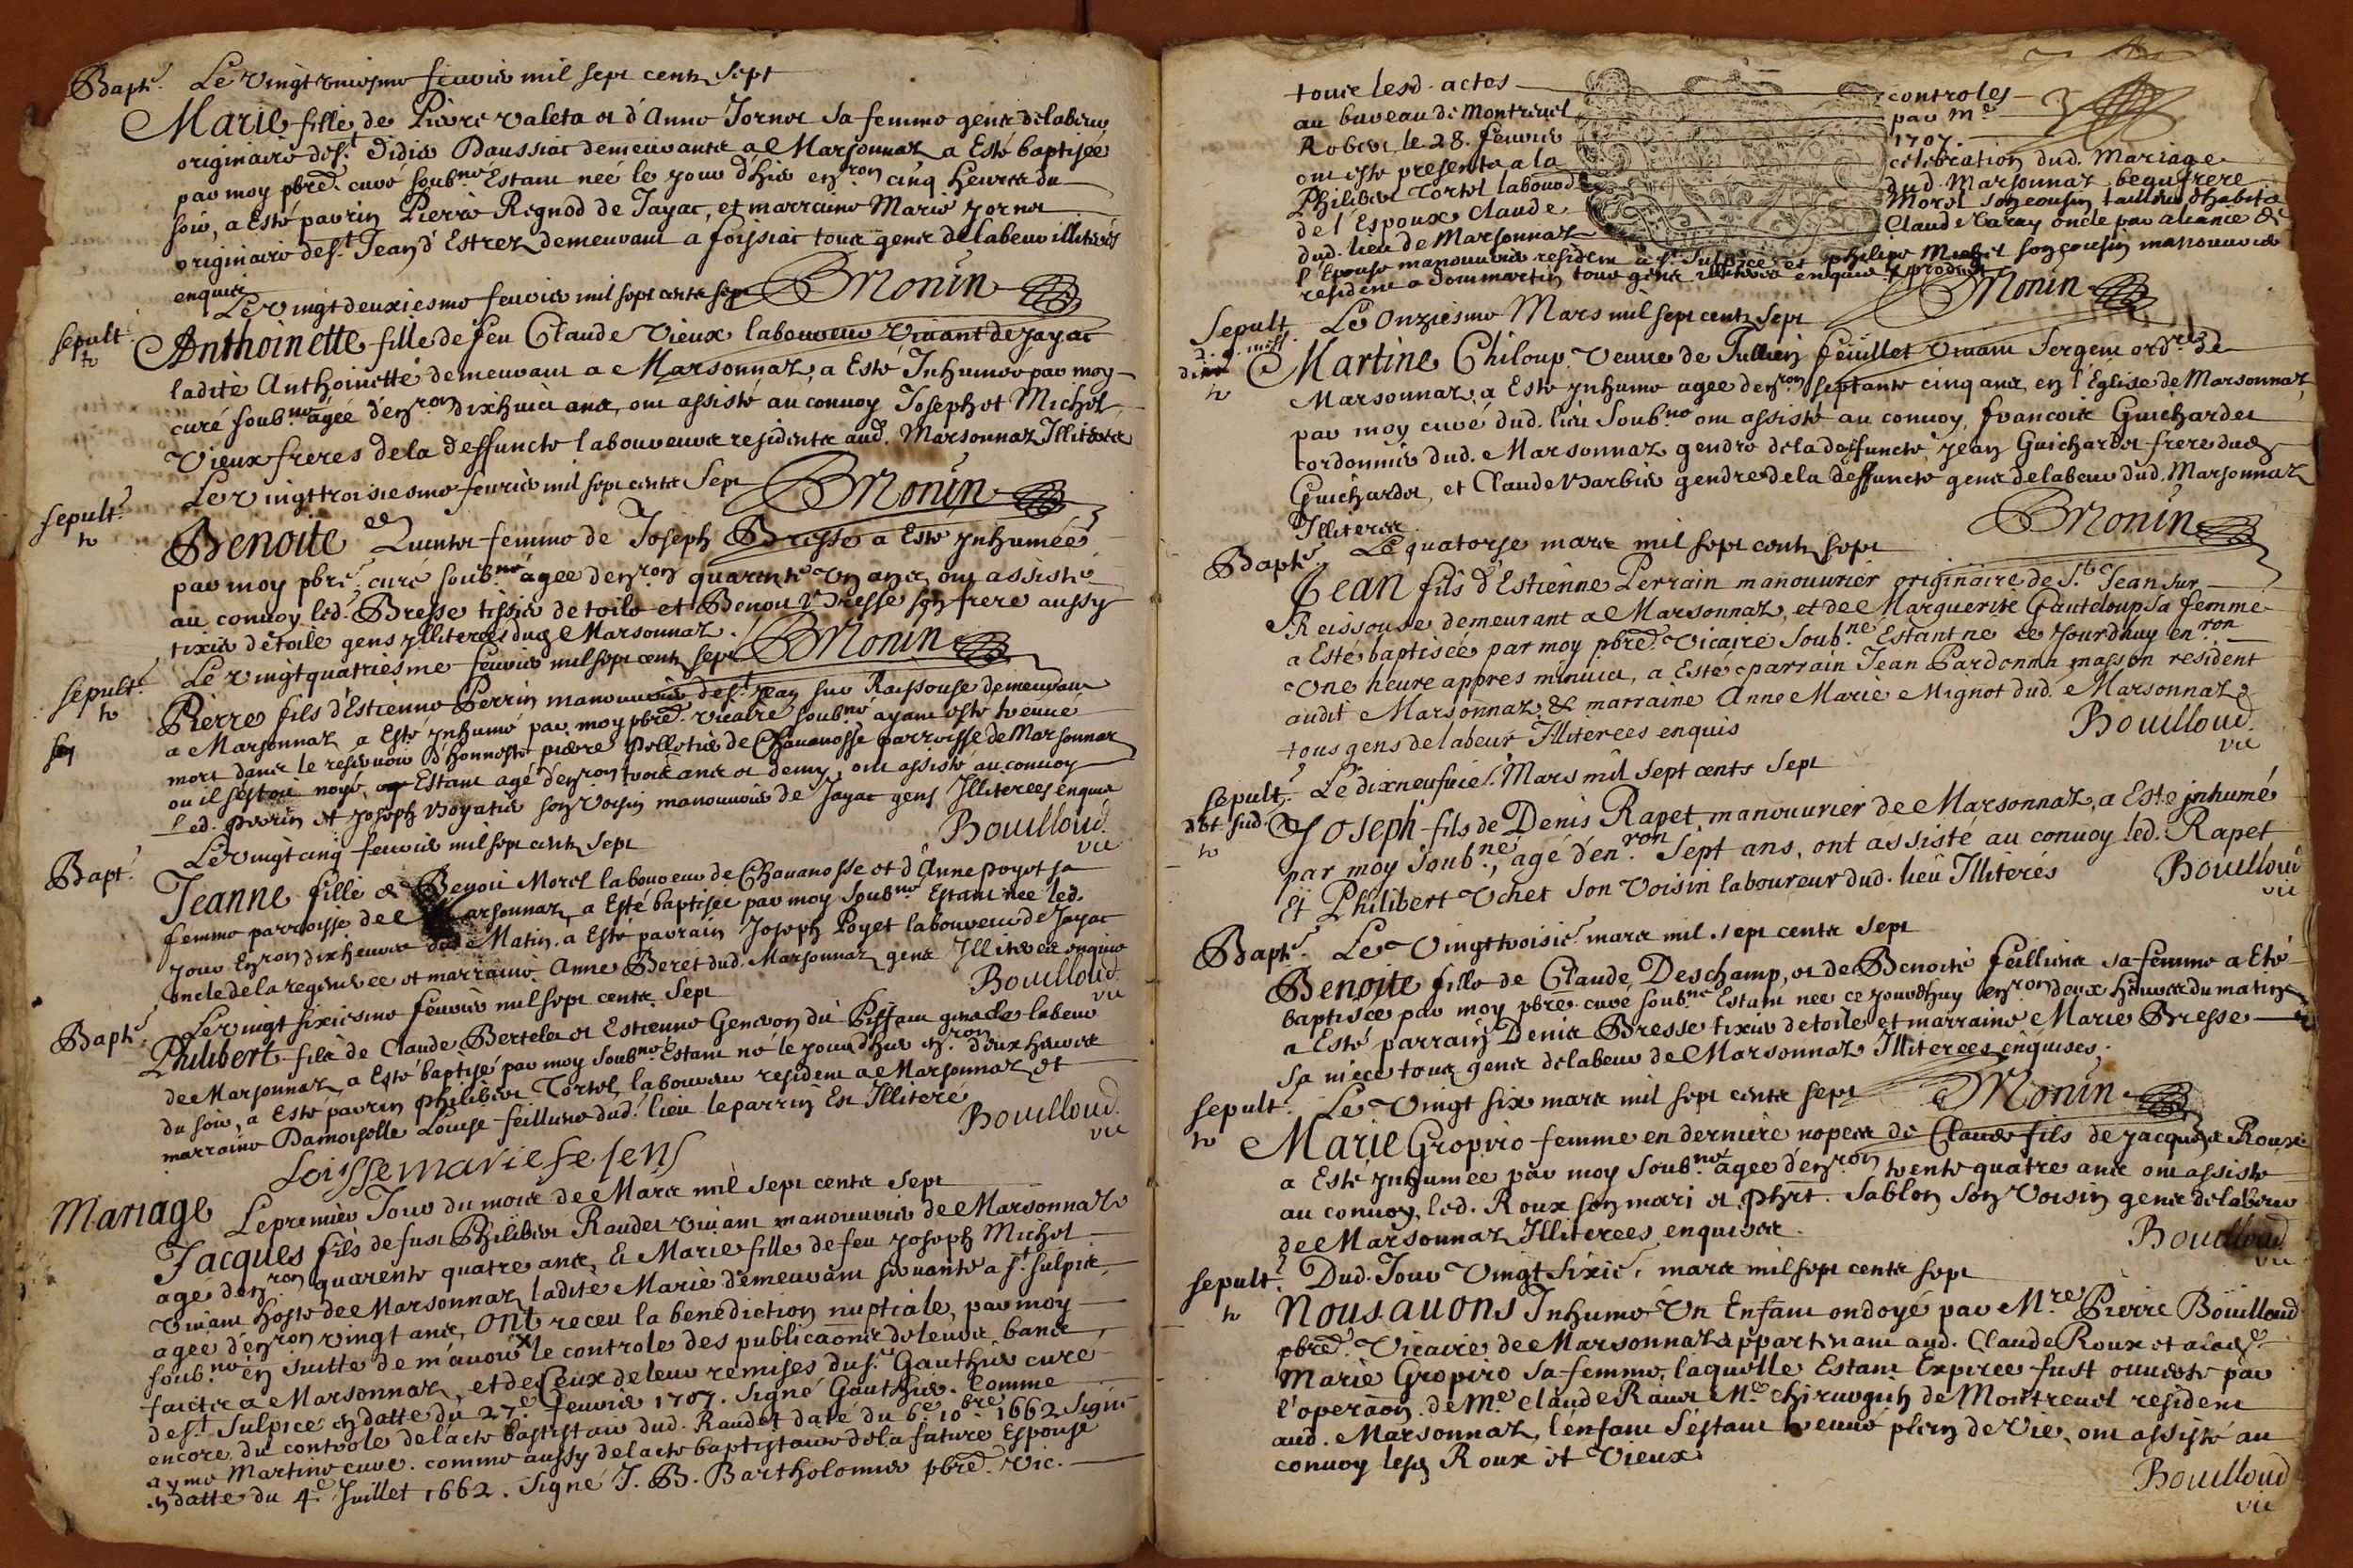 Bapt. Le vingt uniesme feuvrier mil sept cents sept
Marie fille de Pierre Valeta et d'Anne Jornet sa femme gents de labeur
originaire de st Didier Daussiat demeurants a Marsonnaz a esté baptisée
par moy pbre. curé soubné Estant née le jour d'hier enron cinq heures du
soir, a Esté parrin Pierre Regnod de Jayac, et marraine Marie Jornet
originaire de st Jean d'Estrez demeurant a foissiat tous gents de labeur illiterés
enquis Monin
Le vingtdeuxiesme feuvrier mil sept cents sept
sepult. Anthoinette fille de feu Claude Vieux laboureur vivant de Jayac
ladite Anthoinette demeurant a Marsonnaz, a Esté Inhumée par moy
curé soubné agée d'enron dixhuict ans, ont assisté au convoy Joseph et Michel
Vieux freres de la deffuncte laboureurs residents aud. Marsonnaz Illiteres
Le vingttroisiesme feuvrier mil sept cents sept Monin
sepult. Benoite Quinte femme de Joseph Bresse a Esté ynhumée
par moy pbre curé soubné agée d'enron quarente un ans, ont assisté
au convoy led. Bresse tissier de toile et Benoit Bresse son frere aussy
tixier de toile gens ylliterées dud Marsonnaz. Monin
Le vingtquatriesme feuvrier mil sept cents sept
sepult. Pierre fils d'Estienne Perrin manouvrier de st Jean sur Raissouse demeurant
a Marsonnaz a Esté ynhumé par moy pbre. vicaire soubné ayant esté treuvé
mort dans le reservoir d'honneste pierre Pelletier de Chavanosse parroisse de Marsonnaz
ou il sestoit noyé, Estant agé d'enron trois ans et demy, ont assisté au convoy
led. Perrin et Joseph Boyatier son voisin manouvrier de Jayac gens Illiterees enquis
Bouilloud
vic
Le vingt cinq feuvrier mil sept cents sept
Bapt. Jeanne fille de Benoit Morel laboureur de Chavanosse et d'Anne poyet sa
femme parroisse de Marsonnaz, a Esté baptisée par moy soubné Estant née led.
jour Enron dixheures du Matin, a Esté parrain Joseph Poyet laboureur de Jayac
oncle de la regenerée et marraine Anne Beret dud. Marsonnaz gents Illiterees enquis
Bouilloud
vic
Le vingt sixiesme feuvrier mil sept cents sept
Bapt. Philibert fils de Claude Bertelet et Estienne Genevon du Bissant gens de labeur
de Marsonnaz, a Esté baptisé par moy soubné Estant né le jour d'hier enron deux heures
du soir, a Esté parrin philibert Tortel laboureur resident a Marsonnaz et
marraine Damoiselle Louise feilluns dud. lieu le parrin Est Illiteré
Bouilloud
vic
Loisse marie fesens
Mariage Le premier Jour du mois de Mars mil sept cents sept
Jacques fils de fust Philibert Raudet vivant manouvrier de Marsonnaz
agé denron quarente quatre ans, Et Marie fille de feu joseph Michel
vivant hoste de Marsonnaz ladite Marie demeurant servante a st sulpice,
agée d'enron vingt ans, ont receu la benediction nuptiale, par moy
soubné en suitte de m'avoir x le controle des publicaons de leurs bans
faictes a Marsonnaz, et de Ceux de leur remises du sr. Gauthier curé
de st Sulpice en datte du 27e feuvrier 1707. Signé Gauthier. Comme
encore du controle de lacte baptistaire dud. Raudet daté du 6e 10bre 1662 signé
aymé Martine curé. comme aussy de lacte baptistaire de la future Espouse
en datte du 4e Juillet 1662. Signé J. B. Bartholomier pbre. vic.
tous lesd. actes controles
au bureau de Montrevel par Me
Robert le 28. feuvrier 1707.
ont esté presents a la celebration dud. Mariage
Philibert Tortel laboud dud. Marsonnaz beaufrere
de l'Espoux Claude Morel son cousin tailleur d'habits
dud. lieu de Marsonnaz Claude Taray oncle par aliance de
l'Epouse manouvrier resident a st Sulpice et philipe Michel son cousin manouvrier
resident a Dommartin tous gens illiteres enquis
Monin
Sepult. Le Onziesme Mars mil sept cents sept
Martine Chiloup Veuve de Jullien feuillet vivant Sergent ordre de
Marsonnaz, a Esté ynhumé agee d'enron septante cinq ans, en l'Eglise de Marsonnaz,
par moy curé dud. lieu soubné ont assisté au convoy, francois Guichardet
cordonnier dud. Marsonnaz gendre de la deffuncte, Jean Guichardet frere dud
Guichardet, et Claude Barbier gendre de la deffuncte gens de labeur dud. Marsonnaz
Illiteres Monin
Bapt. Le quatorse mars mil sept cents sept
Jean fils d'Estienne Perrain manouvrier originaire de St. Jean sur
Reissouse demeurant a Marsonnaz, et de MargueriteGanteloup sa femme
a Esté baptisée par moy pbre. Vicaire Soubné Estant né ce Jourdhuy enron
Une heure appres minuict, a Esté parrain Jean Pardonna masson resident
audit Marsonnaz & marraine Anne Marie Mignot dud. Marsonnaz
tous gens de labeur Illiterees enquis
Bouilloud
vic
sepult. Le dixneufvie. Mars mil sept cents sept
Joseph fils de Denis Rapet manouvrier de Marsonnaz, a Esté inhumé
par moy soubné, agé d'enron sept ans, ont assisté au convoy led. Rapet
Et Philibert Uchet son voisin laboureur dud. lieu Illiterés Bouilloud
vic
Bapt. Le vingttroisie. mars mil sept cents sept
Benoite fille de Claude Deschamp, et de Benoite feillens sa femme a Eté
baptisée par moy pbre curé soubné Estant née ce jourdhuy enron deux heures du matin
a Esté parrain Denis Bresse tixier de toile et marraine Marie Bresse
sa niece tous gens de labeur de Marsonnaz Illiterees enquises.
Monin
sepult. Le Vingt six mars mil sept cents sept
Marie Gropiro femme en derniere nopces de Claude fils de jacques Roux
a Esté ynhumée par moy soubné agée d'enron trente quatre ans ont assisté
au convoy, led. Roux son mari et phit. Sablon son voisin gens de labeur
de Marsonnaz Illiterees enquises.
Bouilloud
vic
sepult. Dud. Jour Vingt sixie. mars mil sept cents sept
Nous avons Inhumé Un Enfant ondoyé par Mre Pierre Bouilloud
pbre. Vicaire de Marsonnaz appartenant aud. Claude Roux et alad.
Marie Gropiro sa femme, laquelle Estant Expirée fust ouverte par
l'operaon de Me Claude Ravet Me chirurgien de Montrevel resident
aud. Marsonnaz, lenfant s'estant treuvé plein de vie, ont assisté au
convoy lesd Roux et Vieux
Bouilloud
vic